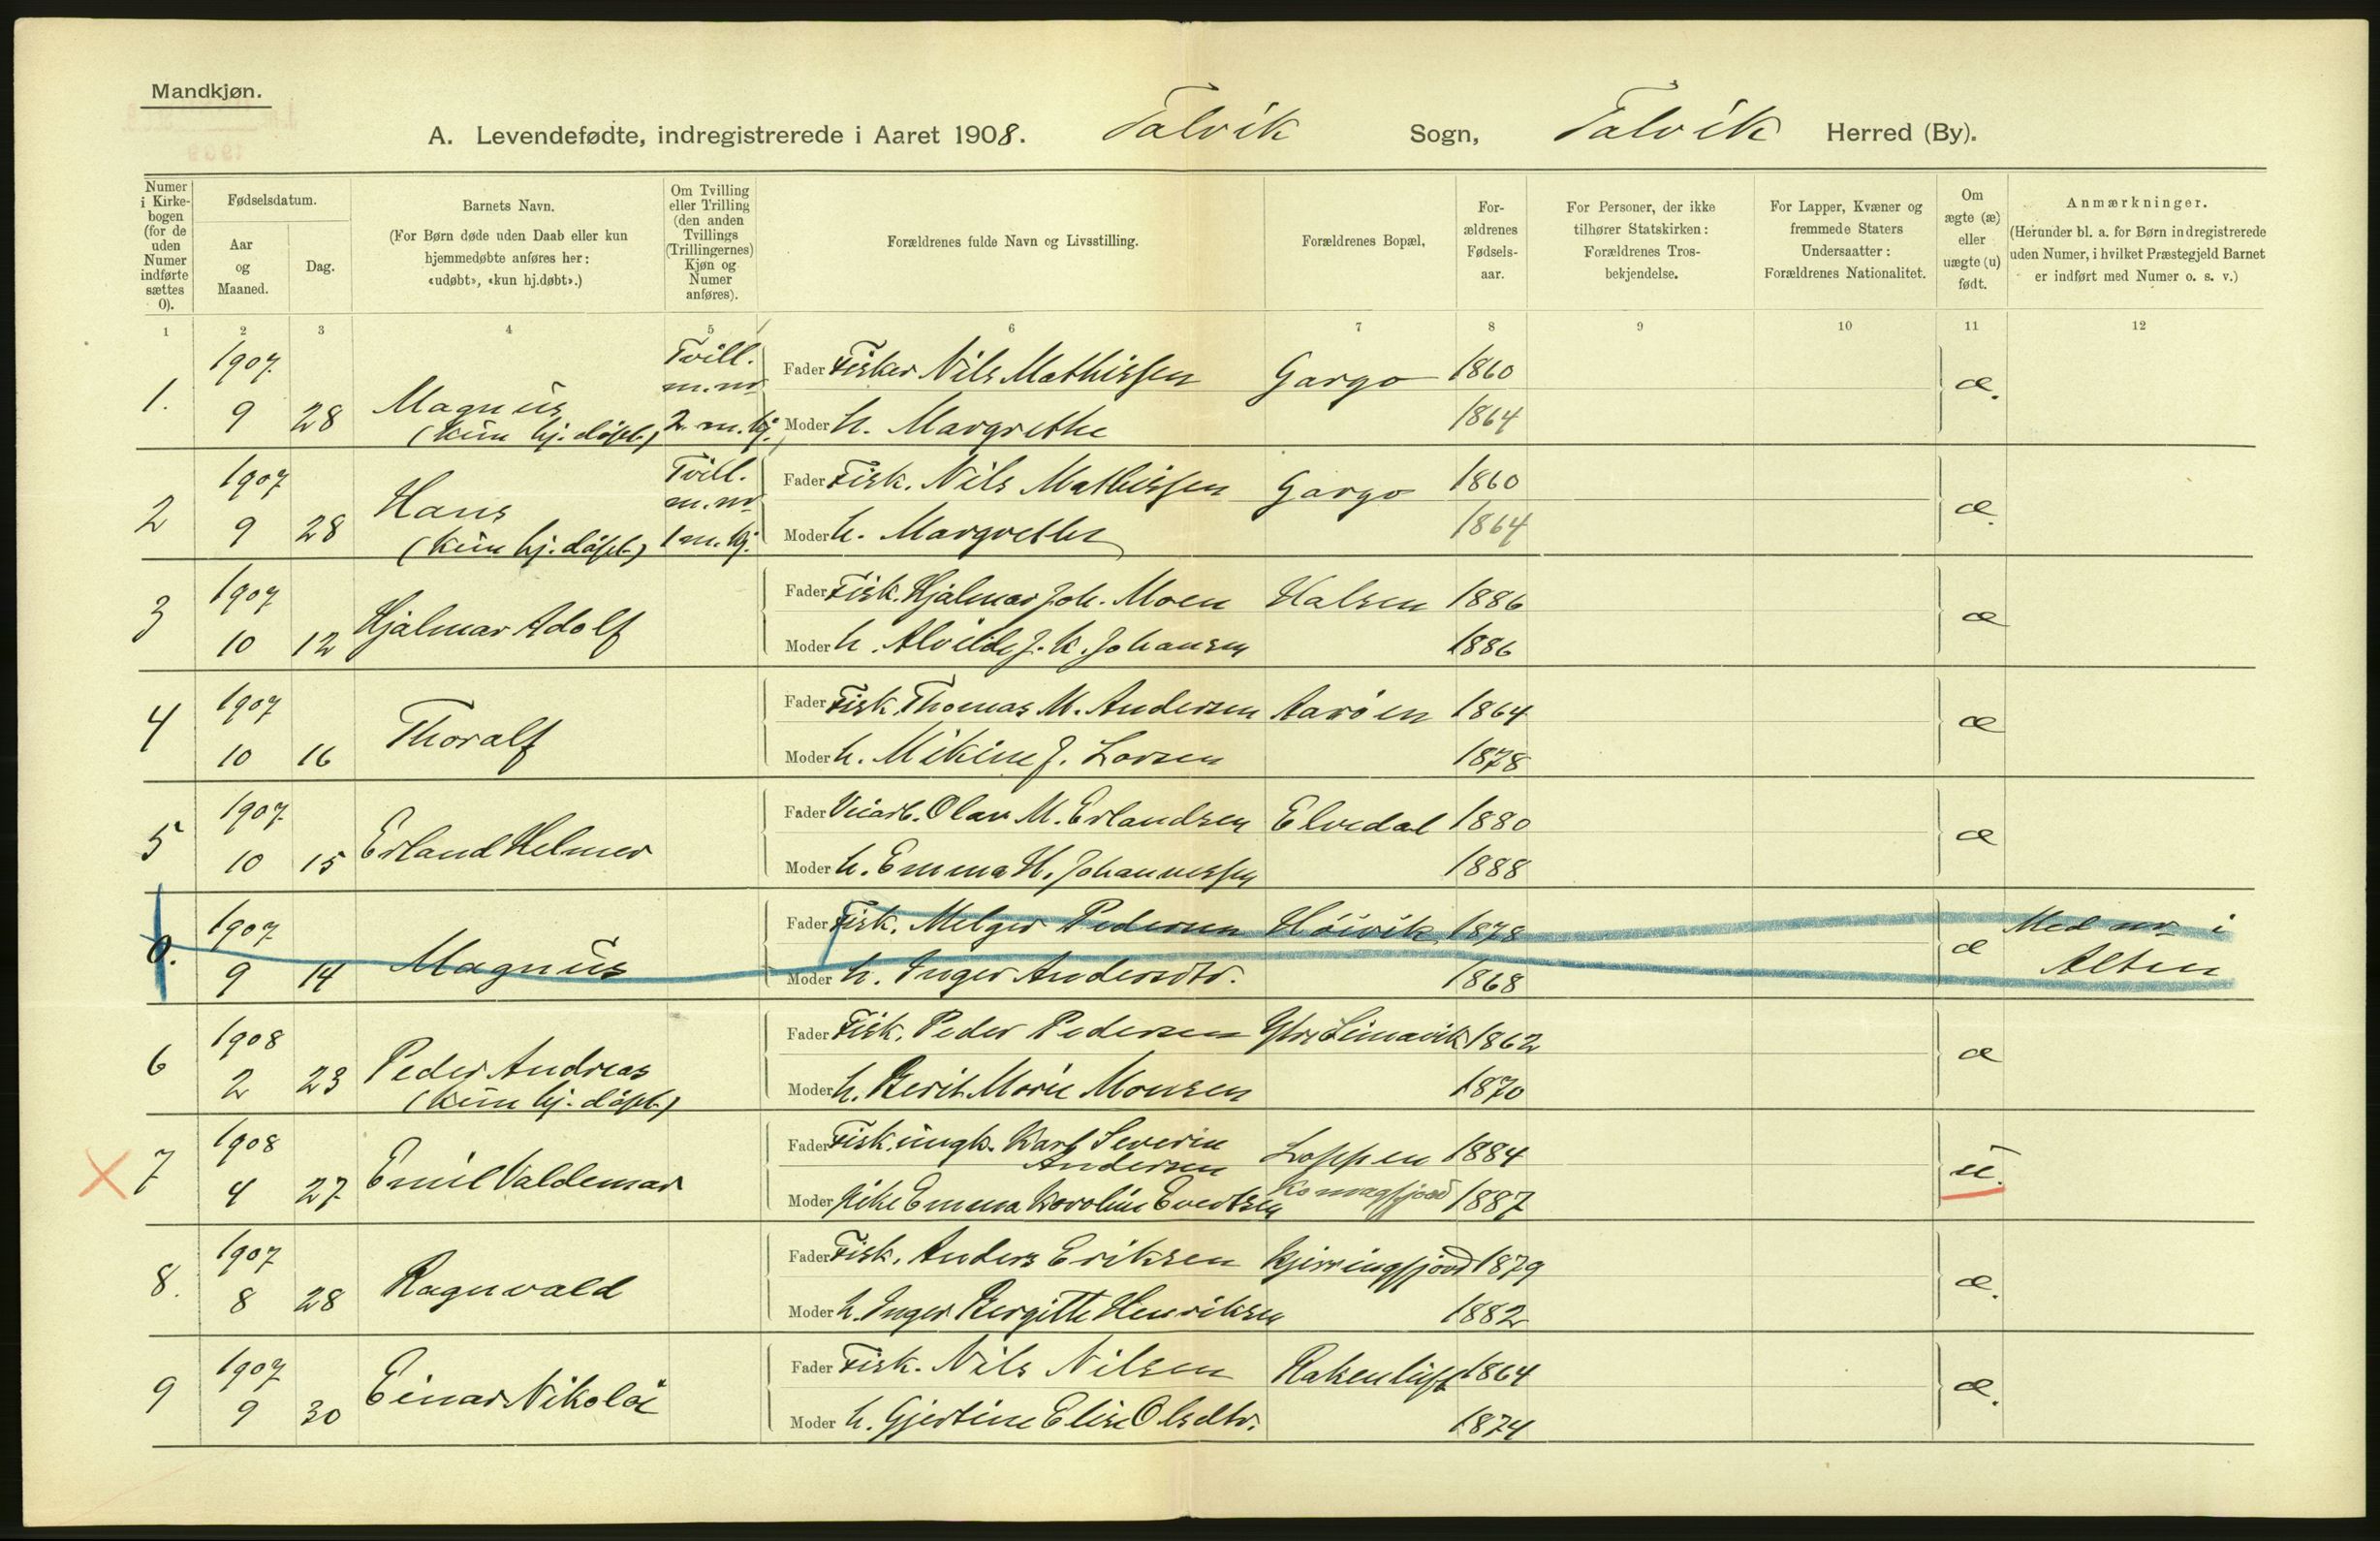 Mandkjøn.
A. Levendefødte, indregistrerede i Aaret 1908. Talvik Sogn, Talvik Herred (By).
Numer i Kirkebogen (for de uden Numer indførte sættes 0).
Fødselsdatum.
Aar og Maaned.
Dag.
Barnets Navn.
(For Børn døde uden Daab eller kun hjemmedøbte anføres her: «udøbt», «kun hj.døbt».)
Om Tvilling eller Trilling (den anden Tvillings (Trillingernes) Kjøn og Numer anføres).
Forældrenes fulde Navn og Livsstilling.
Forældrenes Bopæl,
Forældrenes Fødselsaar.
For Personer, der ikke tilhører Statskirken: Forældrenes Trosbekjendelse.
For Lapper, Kvæner og fremmede Staters Undersaatter: Forældrenes Nationalitet.
Om ægte (æ) eller uægte (u) født.
Anmærkninger.
(Herunder bl. a. for Børn indregistrerede uden Numer, i hvilket Præstegjeld Barnet er indført med Numer o. s. v.)
1 2 3 4 5 6 7 8 9 10 11 12
1. 1907. 9 28 Magnus (kun hj. døpt) Tvill. m. nr 2 m. kj. Fader Fisker Nils Mathissen Gargo 1860 æ.
Moder h. Margrethe 1864
2 1907 9 28 Hans (kun hj. døpt) Tvill. m. nr 1 m. kj. Fader Fisk. Nils Mathissen Gargo 1860 æ.
Moder h. Margrethe 1864
3 1907 10 12 Hjalmar Adolf Fader Fisk. Hjalmar Joh. Moen Halsen 1886 æ
Moder h. Alvilde J. K. Johansen 1886
4 1907 10 16 Thoralf Fader Fisk. Thomas M. Andersen Aarøen 1864 æ
Moder h. Mikine J. Larsen 1878
5 1907. 10 15 Erland Helmer Fader Veiarb. Olav M. Erlandsen Elvedal 1880 æ
Moder h. Emma H. Johannessen 1888
0. 1907 9 14 Magnus Fader Fisk. Melger Pedersen Høivik 1878 æ Med nr i
Moder h. Inger Andersdtr. 1868 Alten
6 1908 2 23 Peder Andreas (kun hj. døpt) Fader Fisk. Peder Pedersen 1862 æ
Moder h. Berit Marie Monsen 1870
7 1908 4 27 Emil Valdemar Fader Fisk. ungk. Karl Severin Andersen Loppen 1884 u.
Moder Pike Emma Karoline Evertsen Komagfjord 1887
8. 1907 8 28 Ragnvald Fader Fisk. Anders Eriksen Kjerringfjord 1879 æ.
Moder h. Inger Bergitte Henriksen 1882
9 1907 9 30 Einar Nikolai Fader Fisk. Nils Nilsen 1864 æ.
Moder h. Gjertine Elise Olsdtr. 1874